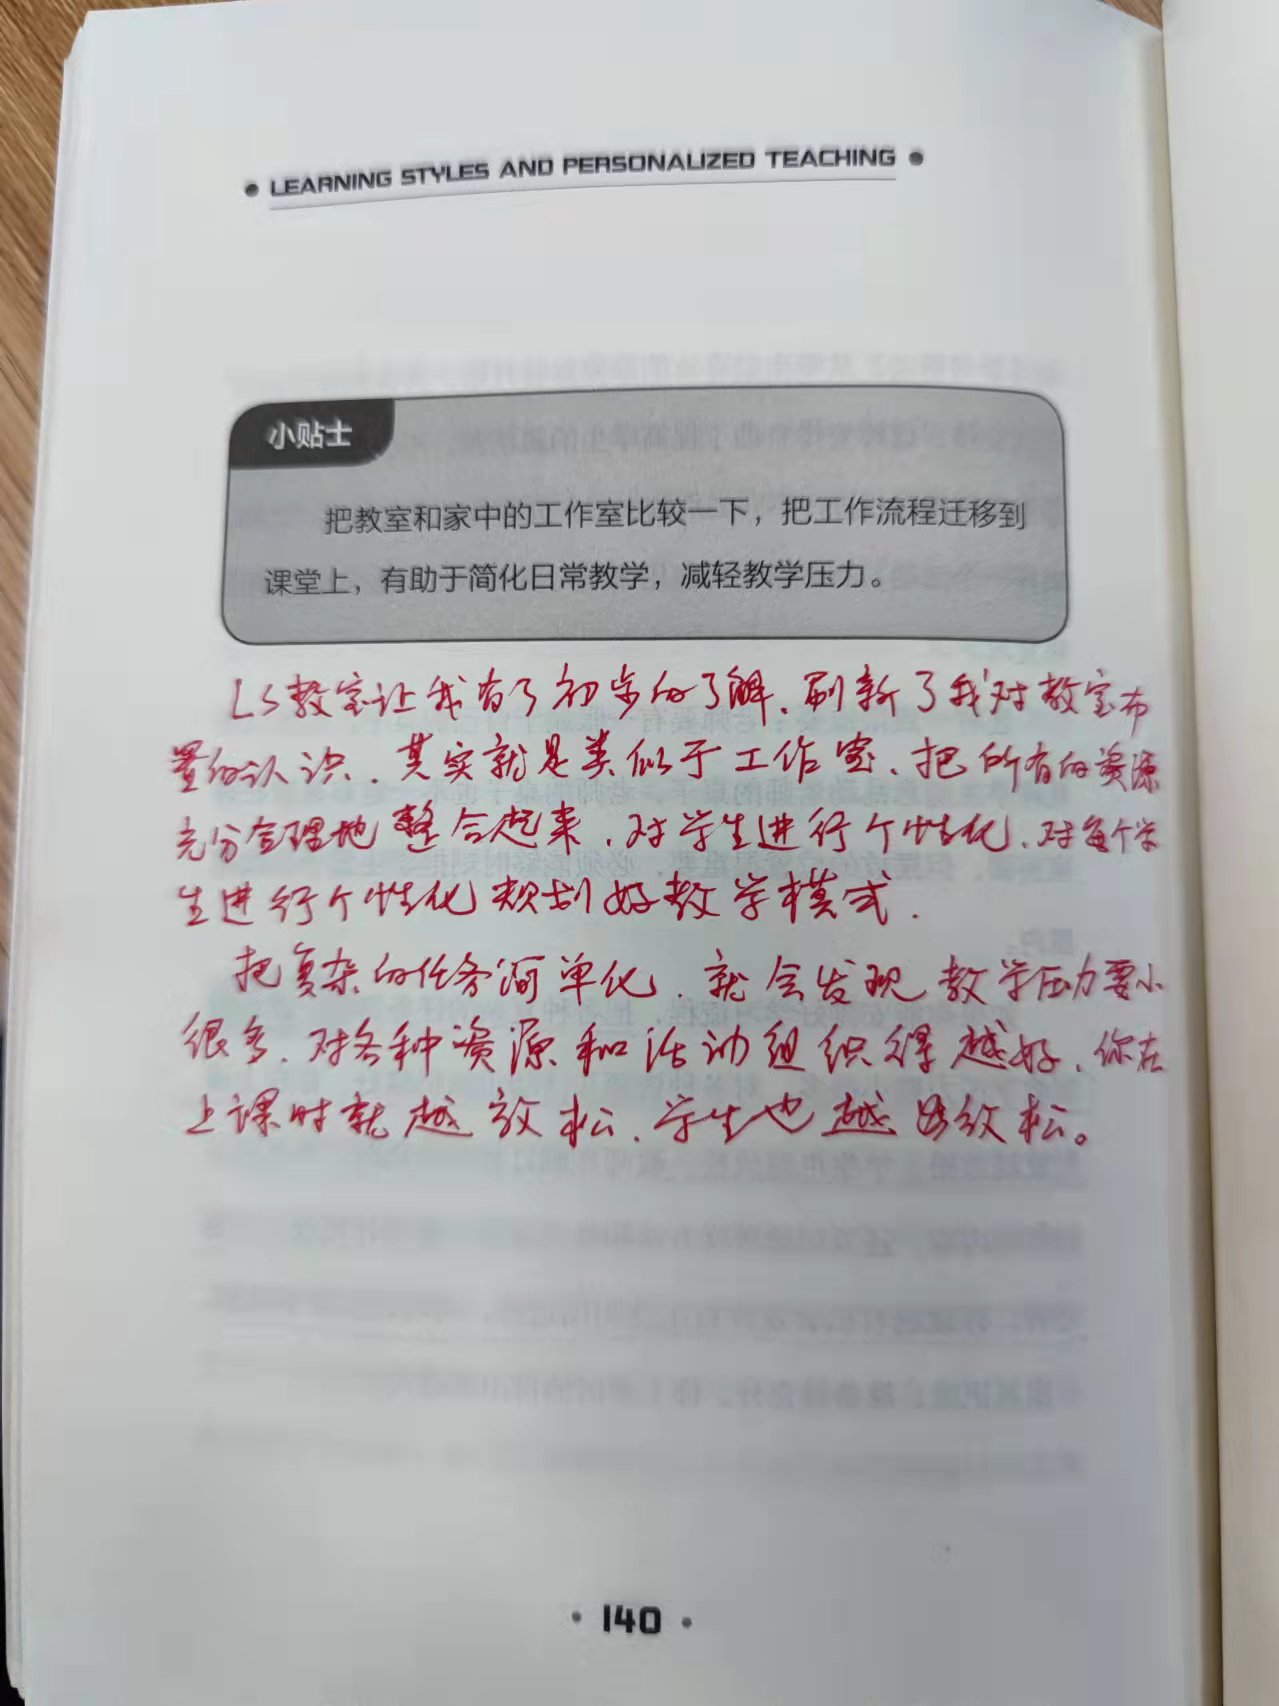 • LEARNING STYLES AND PERSONALIZED TEACHING •
小贴士
把教室和家中的工作室比较一下，把工作流程迁移到
课堂上，有助于简化日常教学，减轻教学压力。
LS教室让我有了初步的了解、刷新了我对教室布
置的认识．其实就是类似于工作室、把所有的资源
充分合理地整合起来．对学生进行个性化．对每个学
生进行个性化规划好教学模式．
把复杂的任务简单化．就会发现教学压力要小
很多．对各种资源和活动组织得越好．你在
上课时就越放松．学生也越放松。
• 140 •